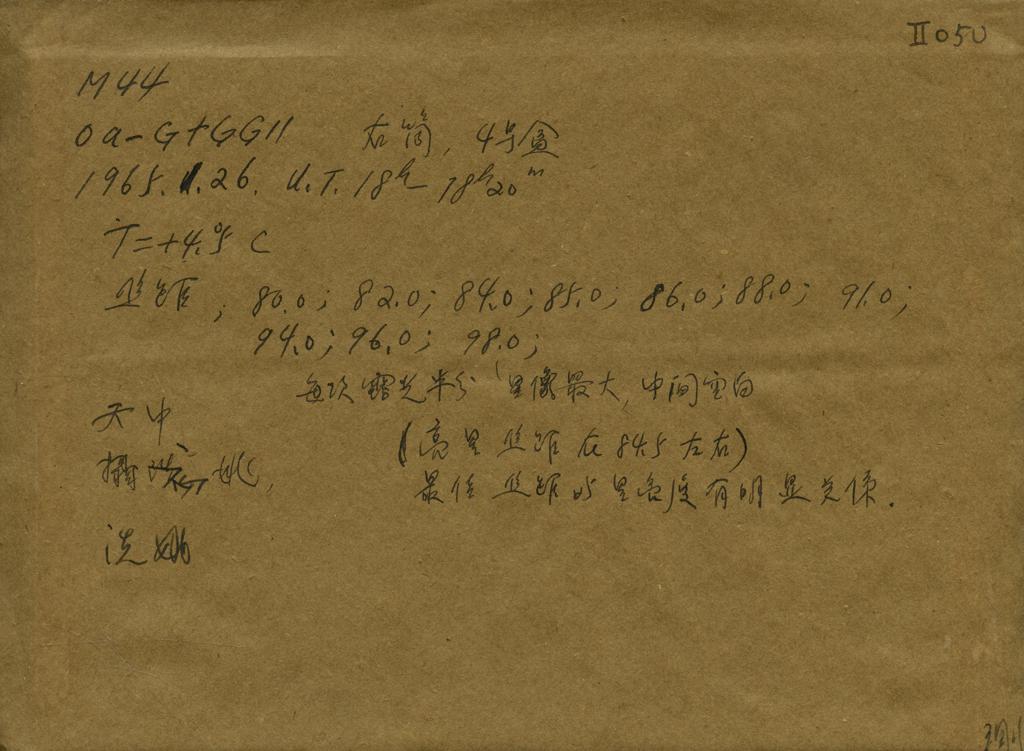 II050
M44
Oa-G+GG11 右筒, 4号盒
1965.1.26. U.T. 18h 18h20m
T=+4.°5 C
焦距, 80.0; 82.0; 84.0; 85.0; 86.0; 88.0; 91.0;
94.0; 96.0; 98.0;
每次露光半分 星像最大, 中间空白
天中
(高星焦距在 84.5 左右)
摄 姚,
最佳焦距 与 星色度有明显关系.
洗